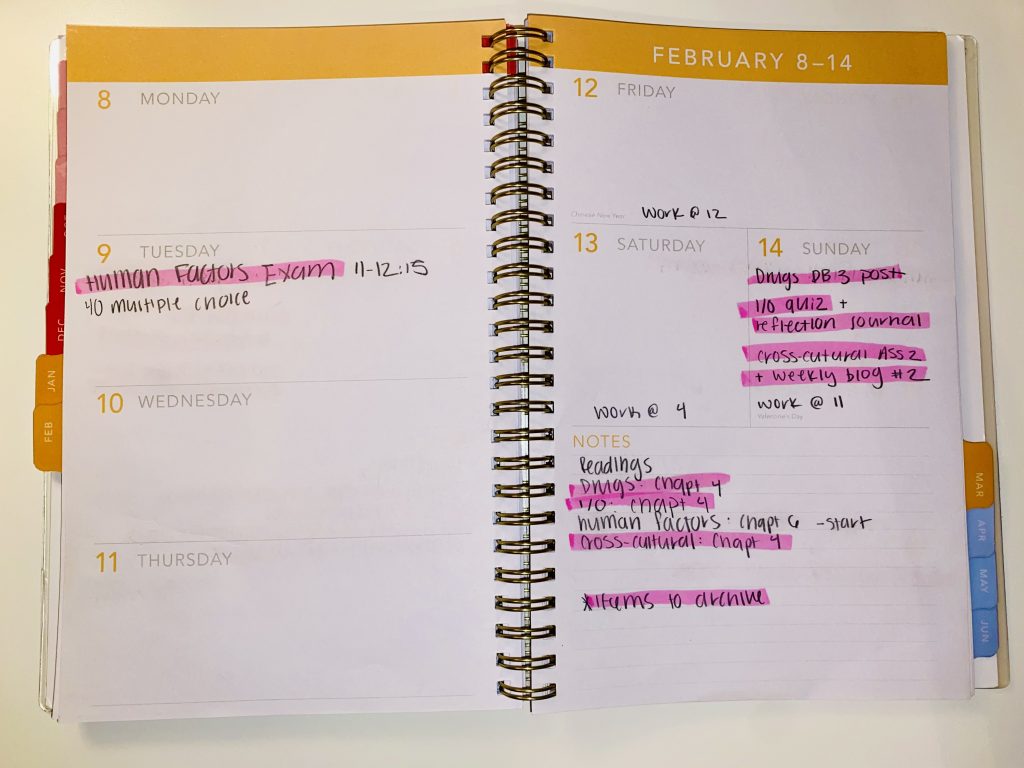 FEBRUARY 8–14
8 MONDAY
9 TUESDAY
Human Factors Exam 11-12:15
40 multiple choice
10 WEDNESDAY
11 THURSDAY
12 FRIDAY
Chinese New Year
Work @ 12
13 SATURDAY
Work @ 4
14 SUNDAY
Drugs DB 3 post
I/O quiz +
reflection journal
cross-cutural Ass 2
+ weekly blog #2
work @ 11
Valentine's Day
NOTES
Readings
Drugs: Chapt 4
I/O: Chapt 4
human factors: Chapt 6 -start
cross-cultural: Chapt 4
*Items to archive
NOV
DEC
JAN
FEB
MAR
APR
MAY
JUN